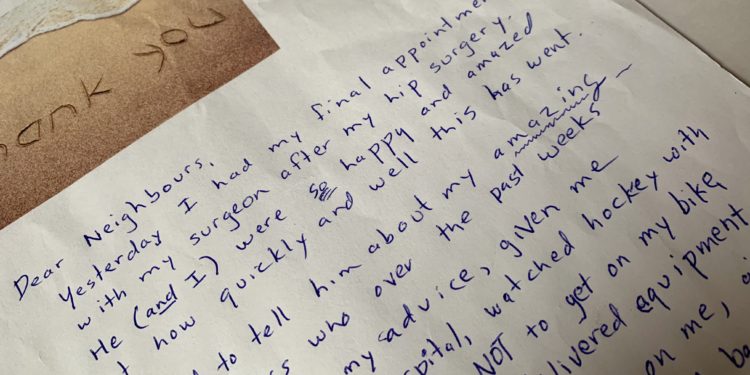 thank you
Dear Neighbours,
Yesterday I had my final appointmen
with my surgeon after my hip surgery.
He (and I) were so happy and amazed
t how quickly and well this has went.
d to tell him about my amazing
s who over the past weeks
my sadvice, given me
pital, watched hockey with
NOT to get on my bike
livered equipment
on me,